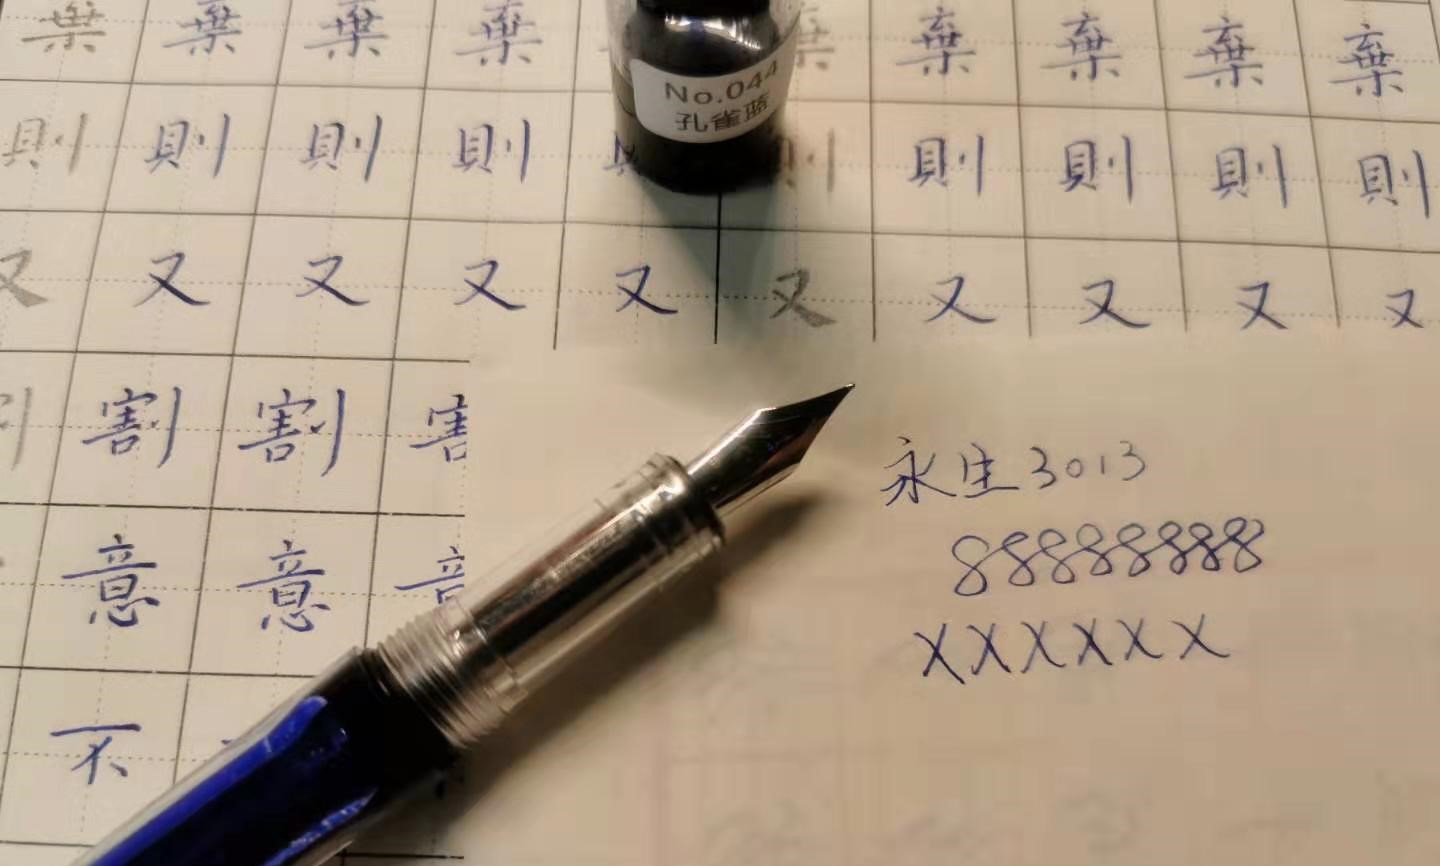 棄 棄 棄 棄 棄 棄 棄 棄
No.044
孔雀蓝
則 則 則 則 則 則 則 則
又 又 又 又 又 又 又 又 又 又
割 割
意 意
不
永生3013
88888888
XXXXXX